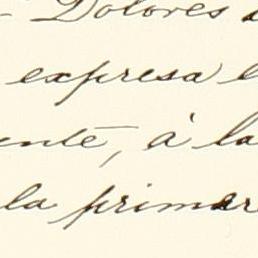 - Dolores
expresa
ente, á la
la primer